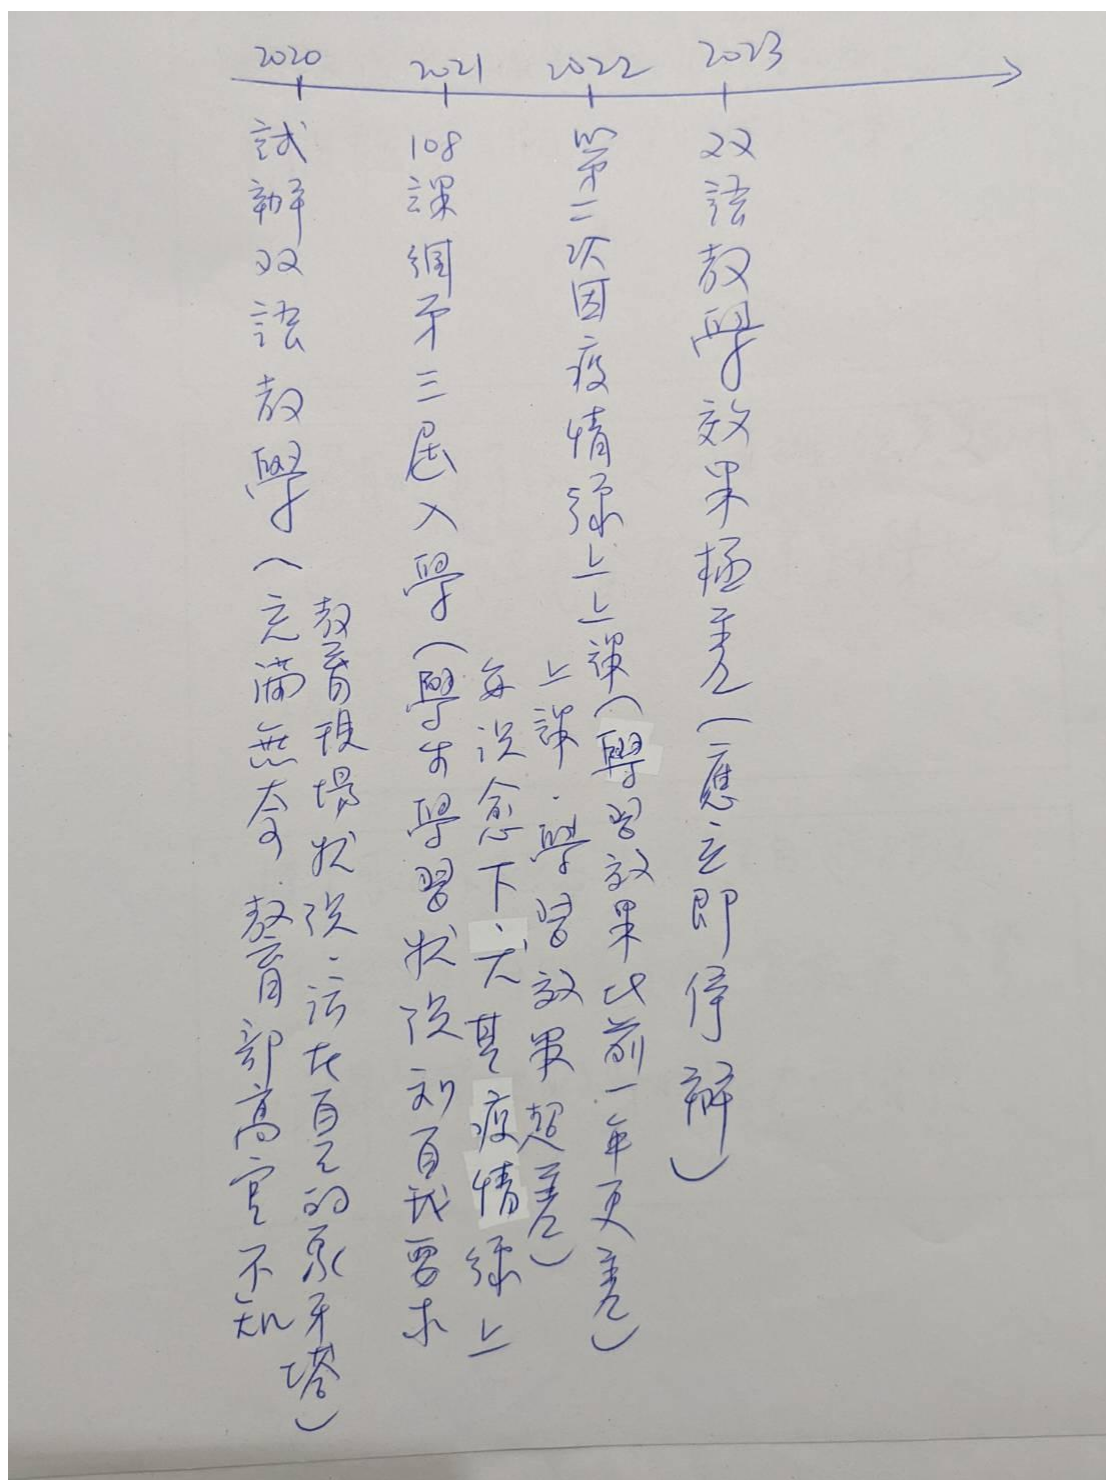 2020
2021
2022
2023
試辦双語教學(充滿無奈,教育部高官不知
教育現場狀況,活在自己的象牙塔)
108課綱第三屆入學(學生學習狀況和自我要求
每況愈下,尤其疫情線上
上課,學習效果超差)
第二次因疫情線上上課(學習效果比前一年更差)
双語教學效果極差(應立即停辦)